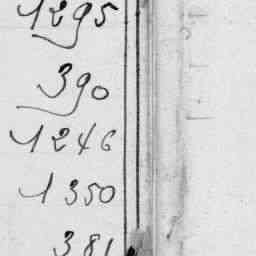 1295
390
1246
1350
381